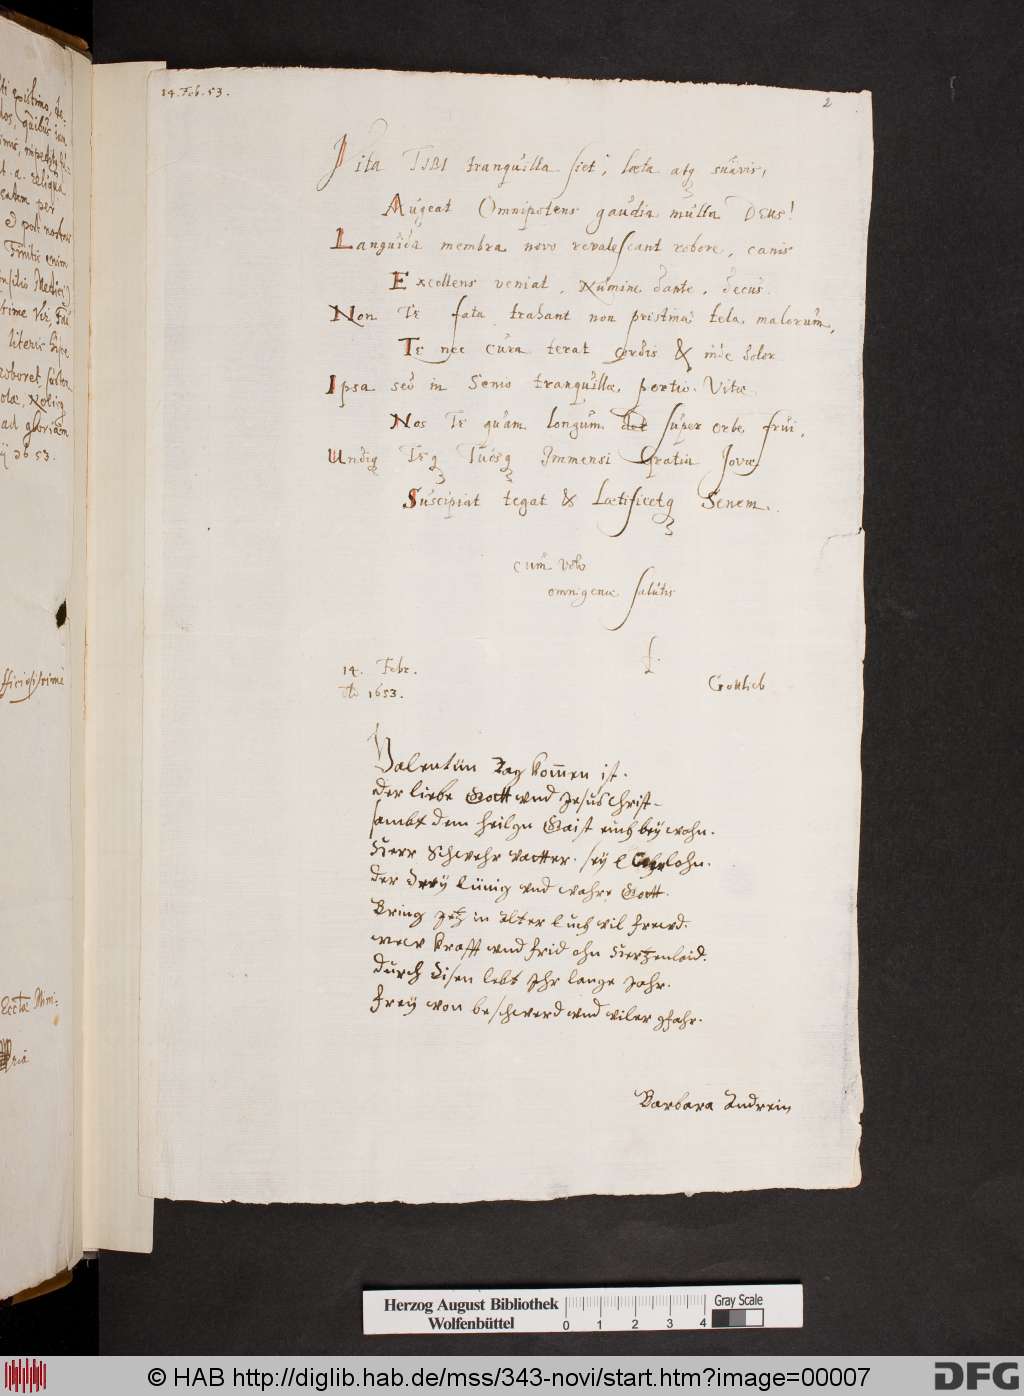 14. Feb. 53.
2
Vita TIBI tranquilla siet, læta atq suavis,
Augeat Omnipotens gaudia multa DEUS!
Languida membra novo revalescant robore, canis
Excellens veniat, Numine dante, decus.
Non TE fata trahant non pristina tela malorum,
TE nec cura terat cordis & inde dolor
Ipsa sed in Senio tranquillæ portio Vitæ
Nos TE quam longum det super orbe frui,
Undiq TEq TUosq Immensi Gratia Jovæ
Suscipiat tegat & Lætificetq Senem.
cum voto
omnigenæ salutis
14. Febr.
Ao 1653.
f.
Gottlieb
Valentin Tag kommen ist.
der liebe Gott und Jesus Christ
sambt dem heilgn Gaist euch bey wohn.
Herr Schwehr vatter sey lohn.
der Drey Einig und wahre Gott.
Bring Jetz in alter Euch vil frewd.
new krafft und frid ohn Hertzenleid.
durch disen lebt Ihr lange Jahr.
frey von beschwerd und viler gfahr.
Barbara Andrein
ad gloriam
Herzog August Bibliothek
Wolfenbüttel
0 1 2 3 4
Gray Scale
© HAB http://diglib.hab.de/mss/343-novi/start.htm?image=00007
DFG